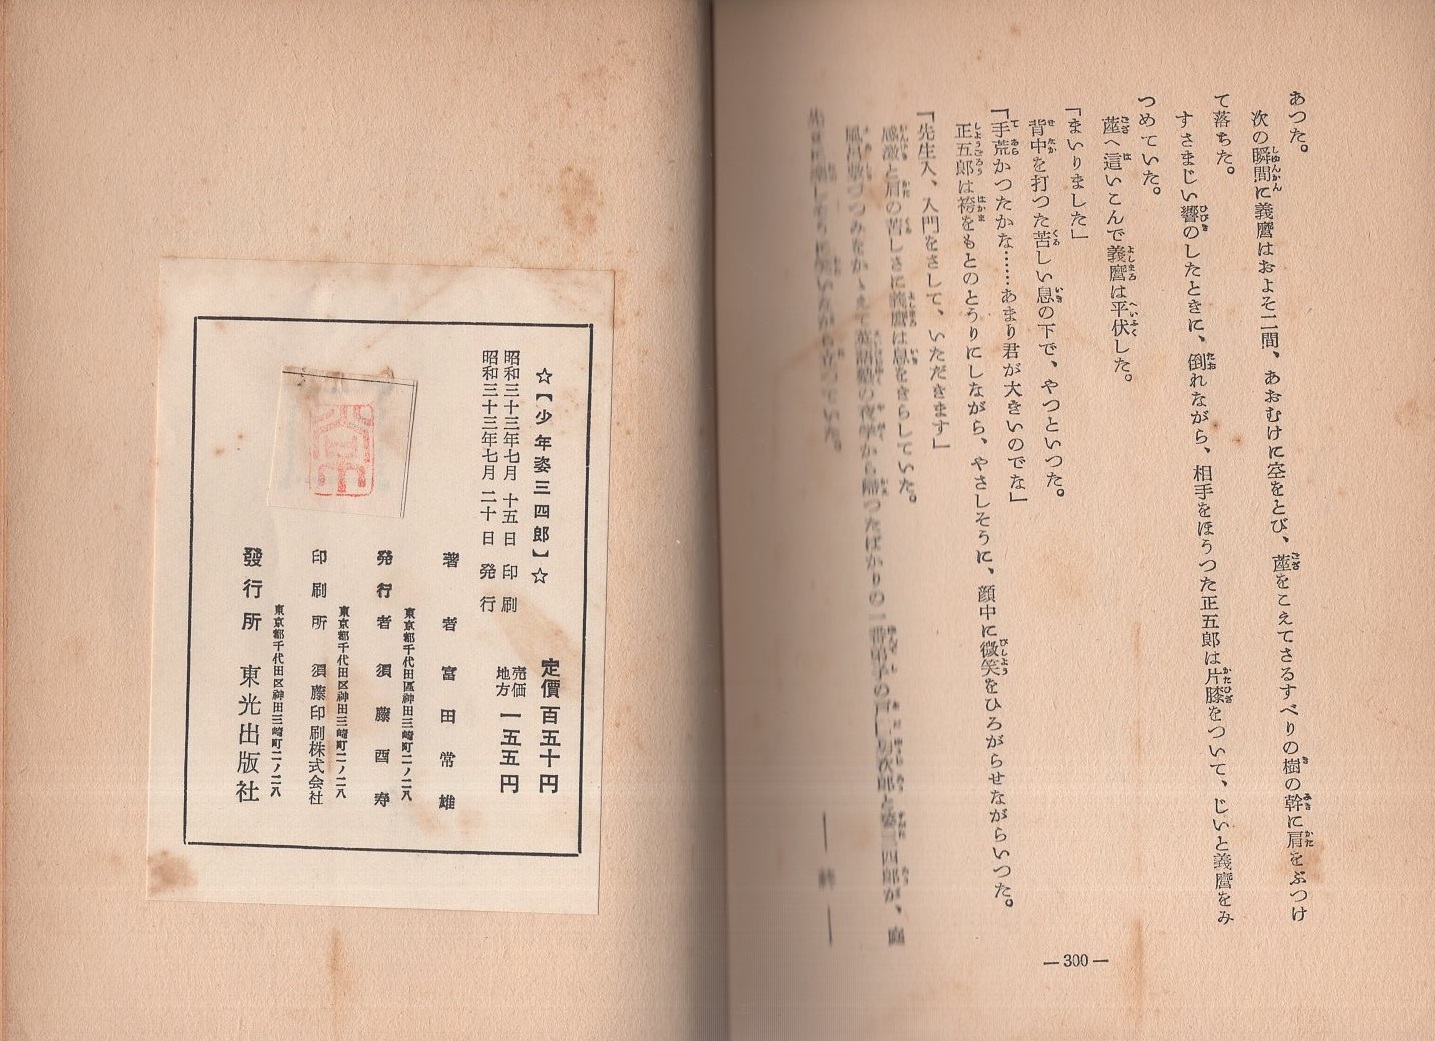 あつた。
次の瞬間に義麿はおよそ二間、あおむけに空をとび、蓙をこえてさるすべりの樹の幹に肩をぶつけ
て落ちた。
すさまじい響のしたときに、倒れながら、相手をほうつた正五郎は片膝をついて、じいと義麿をみ
つめていた。
蓙へ這いこんで義麿は平伏した。
「まいりました」
背中を打つた苦しい息の下で、やつといつた。
「手荒かつたかな……あまり君が大きいのでな」
正五郎は袴をもとのとうりにしながら、やさしそうに、顔中に微笑をひろがらせながらいつた。
「先生入、入門をさして、いただきます」
感激と肩の苦しさに義麿は息をきらしていた。
風呂敷づつみをかゝえて英語塾の夜学から帰つたばかりの一番弟子の戸田雄次郎と姿三四郎が、庭
いながら立つていた。
── 終 ──
― 300 ―
☆【少年姿三四郎】☆
昭和三十三年七月 十五日 印刷
昭和三十三年七月 二十日 発行
定價 百五十円
売価
地方 一五五円
著者 富田常雄
東京都千代田區神田三崎町二ノ二八
発行者 須藤酉寿
東京都千代田区神田三崎町二ノ二八
印刷所 須藤印刷株式会社
東京都千代田区神田三崎町二ノ二八
發行所 東光出版社